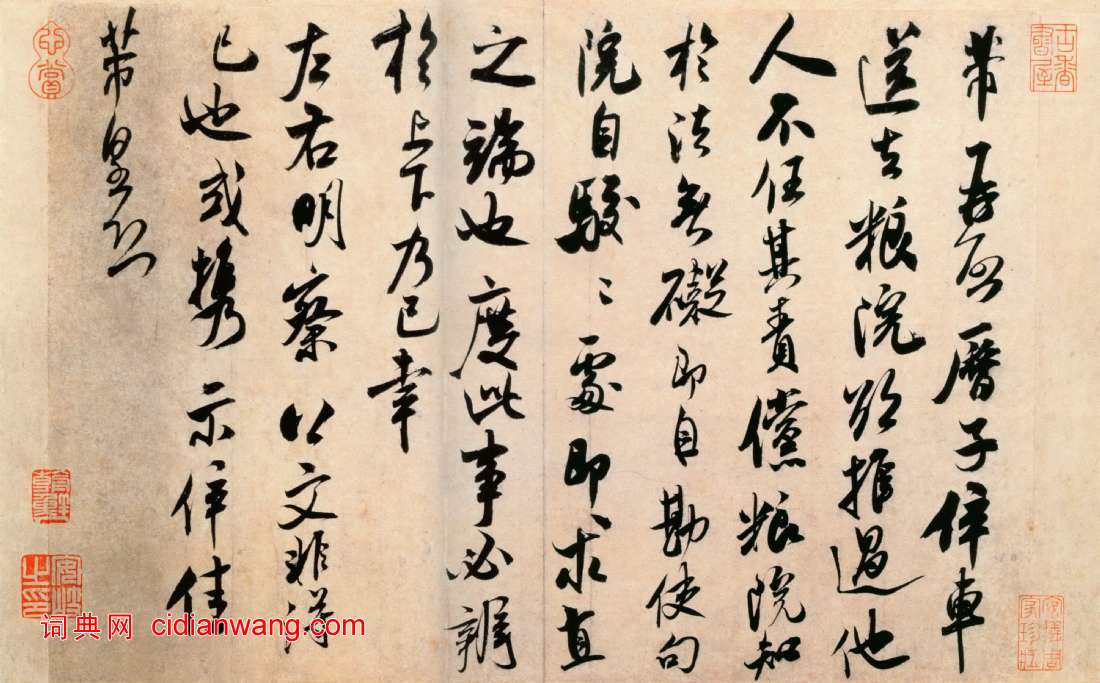 芾再啟曆子倅車
送去粮院欲推過他
人不任其責儻粮院知
於法無礙即自勘使句
院自駁〻處即求直
之端也度此事必辨
於上下乃已幸
左右明察公文非得
已也或攜示倅佳
芾皇恐
词典网 cidianwang.com